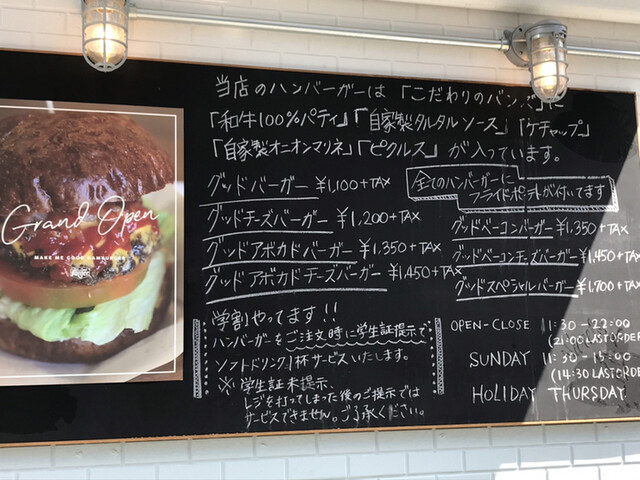 当店のハンバーガーは「こだわりのバンズ」に
「和牛100%パティ」「自家製タルタルソース」「ケチャップ」
「自家製オニオンマリネ」「ピクルス」が入っています。
全てのハンバーガーに
フライドポテトが付いてます
グッドバーガー ¥1,100+TAX
グッドチーズバーガー ¥1,200+TAX
グッドアボカドバーガー ¥1,350+TAX
グッドアボカドチーズバーガー ¥1,450+TAX
グッドベーコンバーガー ¥1,350+TAX
グッドベーコンチーズバーガー ¥1,450+TAX
グッドスペシャルバーガー ¥1,700+TAX
学割やってます!!
ハンバーガーをご注文時に学生証提示で
ソフトドリンク1杯サービスいたします。
※学生証未提示、
レジを打ってしまった後のご提示では
サービスできません。ご了承ください。
OPEN-CLOSE 11:30-22:00
(21:00 LAST ORDER
SUNDAY 11:30-15:00
(14:30 LAST ORDER
HOLIDAY THURSDAY
Grand Open
MAKE ME GOOD HAMBURGER